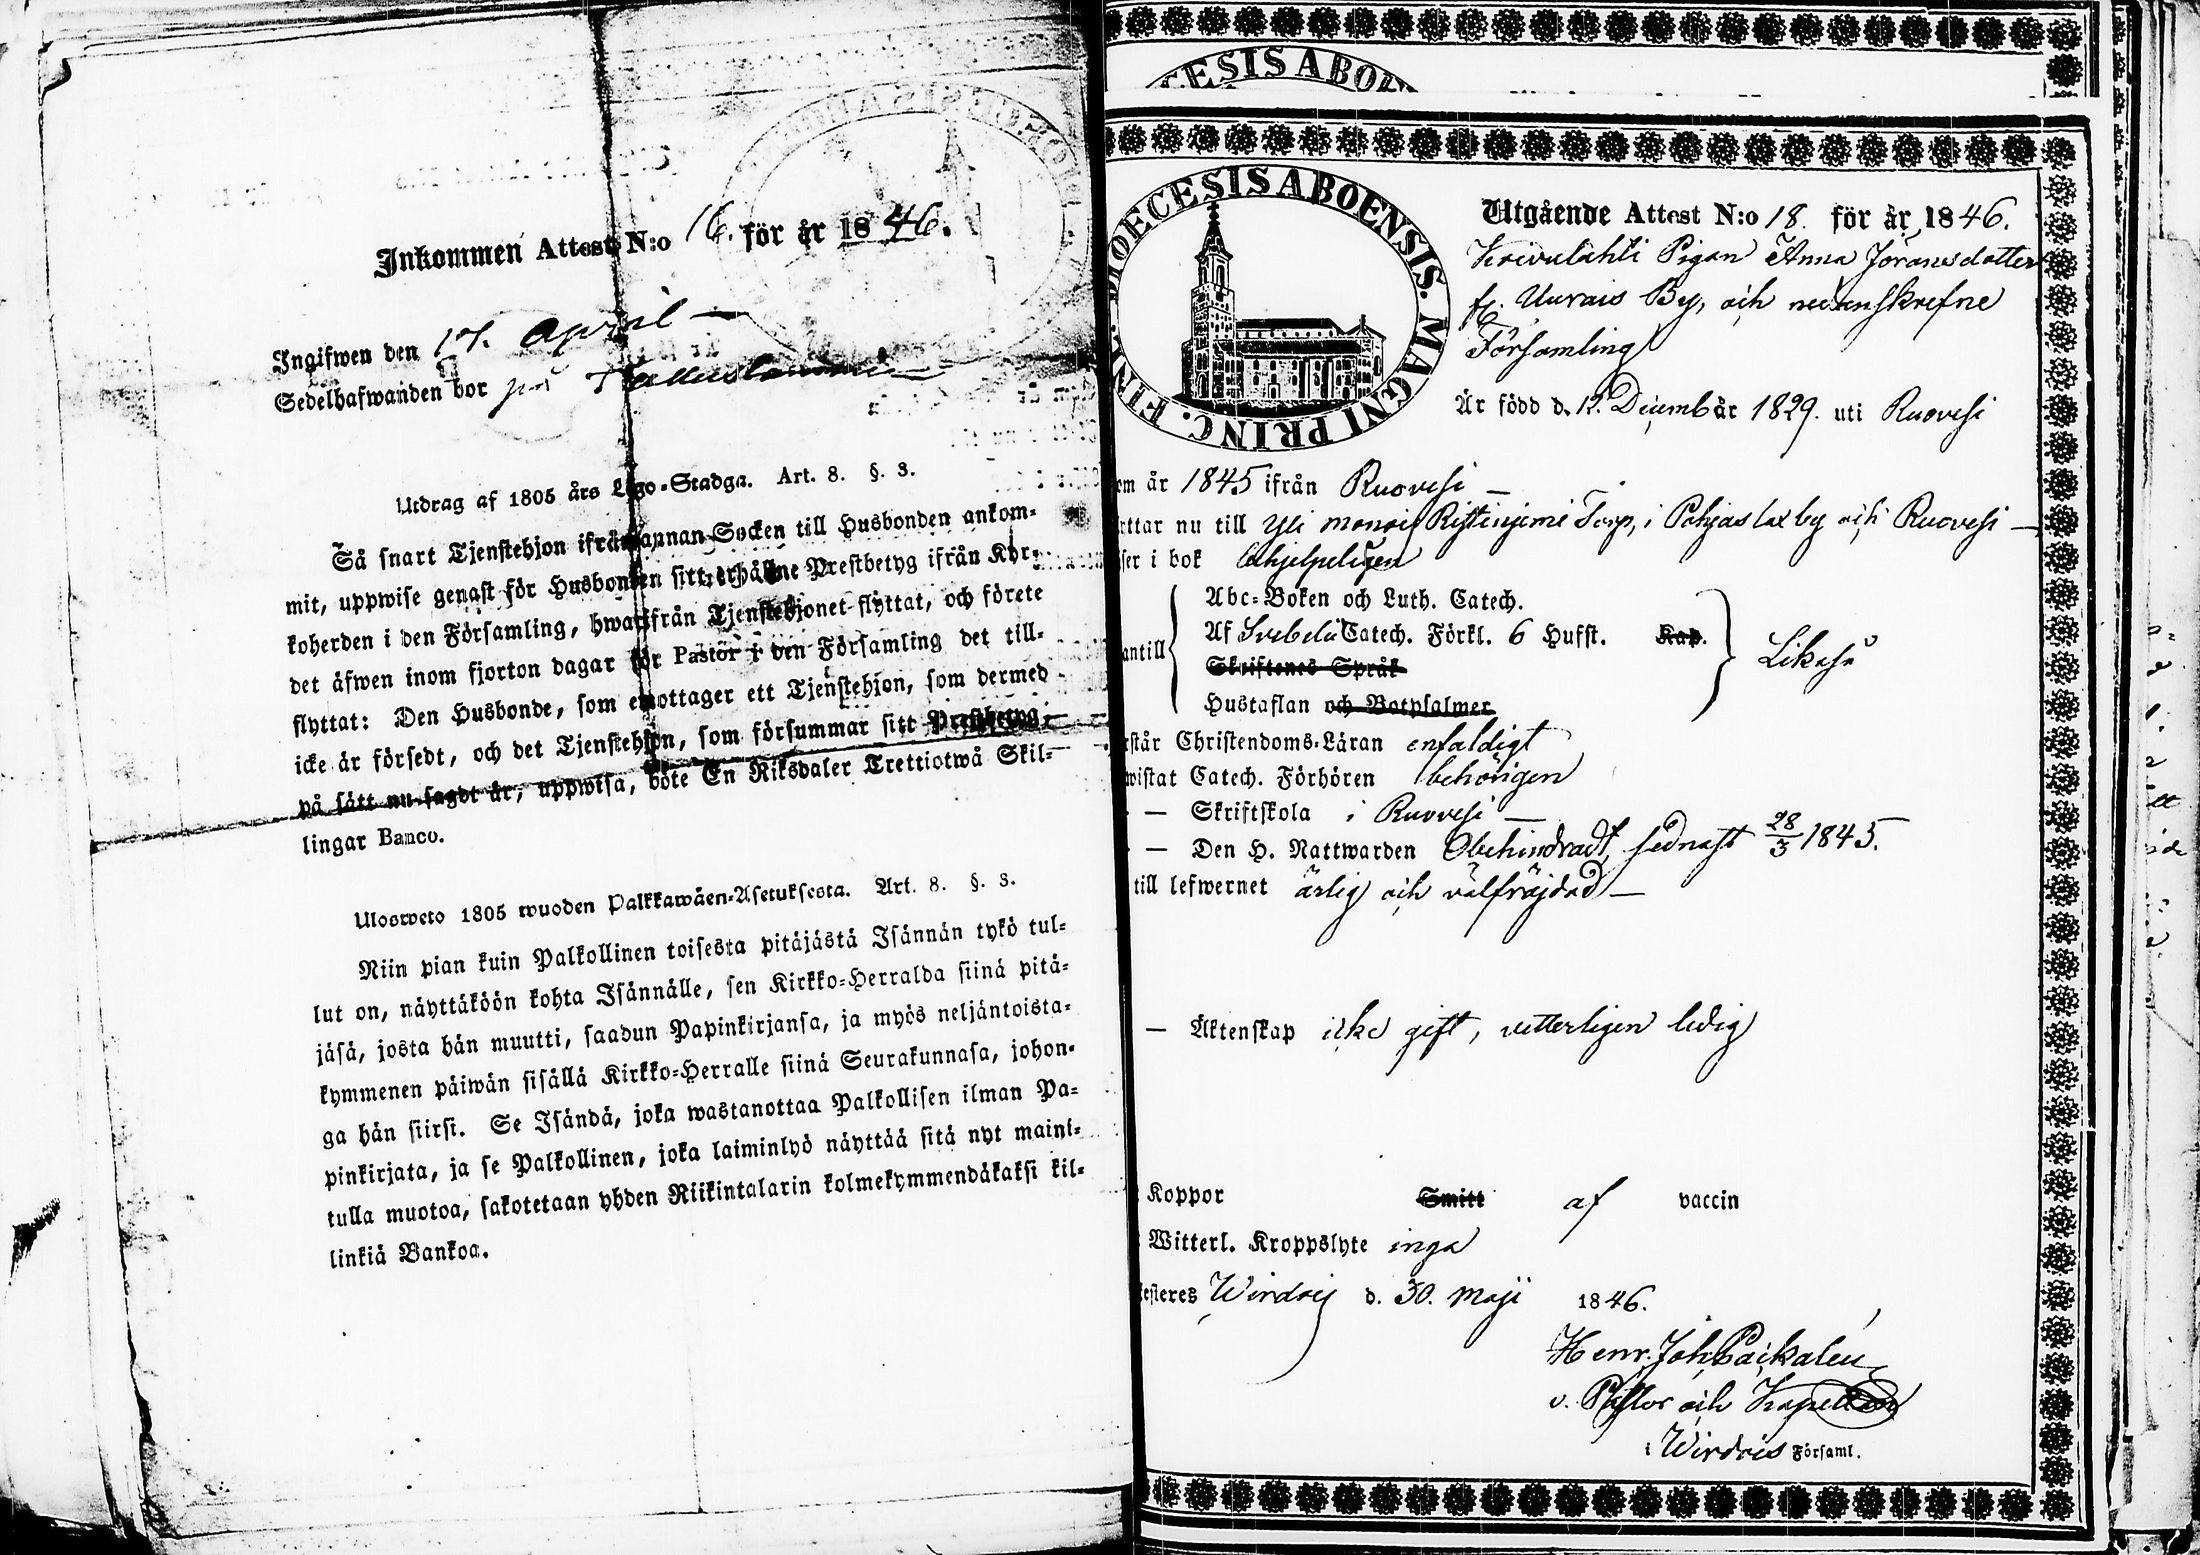 Inkommen Attest N:o 16. för år 1846.
Ingifwen den 17. April
Sedelhafwanden bor på
Utdrag af 1805 års Lego-Stadga. Art. 8. §. 3.
Så snart Tjenstehjon ifrån annan Socken till Husbonden ankom-
mit, uppwise genast för Husbonden sitt erhållne Prestbetyg ifrån Kyr-
koherden i den Församling, hwarifrån Tjenstehjonet flyttat, och förete
det äfwen inom fjorton dagar för Pastor i den Församling det till-
flyttat: Den Husbonde, som emottager ett Tjenstehjon, som dermed
icke är försedt, och det Tjenstehjon, som försummar sitt Prestbetyg,
på sätt nu sagdt är, uppwisa, böte En Riksdaler Trettiotwå Skil-
lingar Banco.
Ulosweto 1805 wuoden Palkkawäen-Asetuksesta. Art. 8. §. 3.
Niin pian kuin Palkollinen toisesta pitäjästä Isännän tykö tul-
lut on, näyttäköön kohta Isännälle, sen Kirkko-Herralda siinä pitä-
jäsä, josta hän muutti, saadun Papinkirjansa, ja myös neljäntoista-
kymmenen päiwän sisällä Kirkko-Herralle siinä Seurakunnasa, johon-
ga hän siirsi. Se Isändä, joka wastanottaa Palkollisen ilman Pa-
pinkirjata, ja se Palkollinen, joka laiminlyö näyttää sitä nyt maini-
tulla muotoa, sakotetaan yhden Riikintalarin kolmekymmendäkaksi kil-
linkiä Bankoa.
CESIS ABOE
DIOECESIS ABOENSIS. MAGNI PRINC. FINL.
Utgående Attest N:o 18. för år 1846.
Koivulahti Pigan Anna Jöransdotter
fr. Uurais By, och nedanskrefne
Församling
Är född d. 12. December 1829. uti Ruovesi
om år 1845 ifrån Ruovesi
yttar nu till Yli monois Ristinjemi Torp, i Pohjaslax by och Ruovesi
ser i bok behjelpeligen
antill Abc-Boken och Luth. Catech.
Af Svebelii Catech. Förkl. 6 Hufst. Kap.
Skriftenes Språk
Likaså
Hustaflan och Botpsalmer
rstår Christendoms-Läran enfaldigt
wistat Catech. Förhören behörigen
— Skriftskola i Ruovesi
— Den H. Nattwarden Obehindradt, sednast 28/3 1845.
till lefwernet ärlig och välfräjdad
— Äktenskap icke gift, vetterligen ledig
Koppor Smitt af vaccin
Witterl. Kroppslyte inga
testeres Wirdois d. 30. Maji 1846.
Henr. Joh. Paikalen
v. Pastor och Kapellan
i Wirdois Församl.